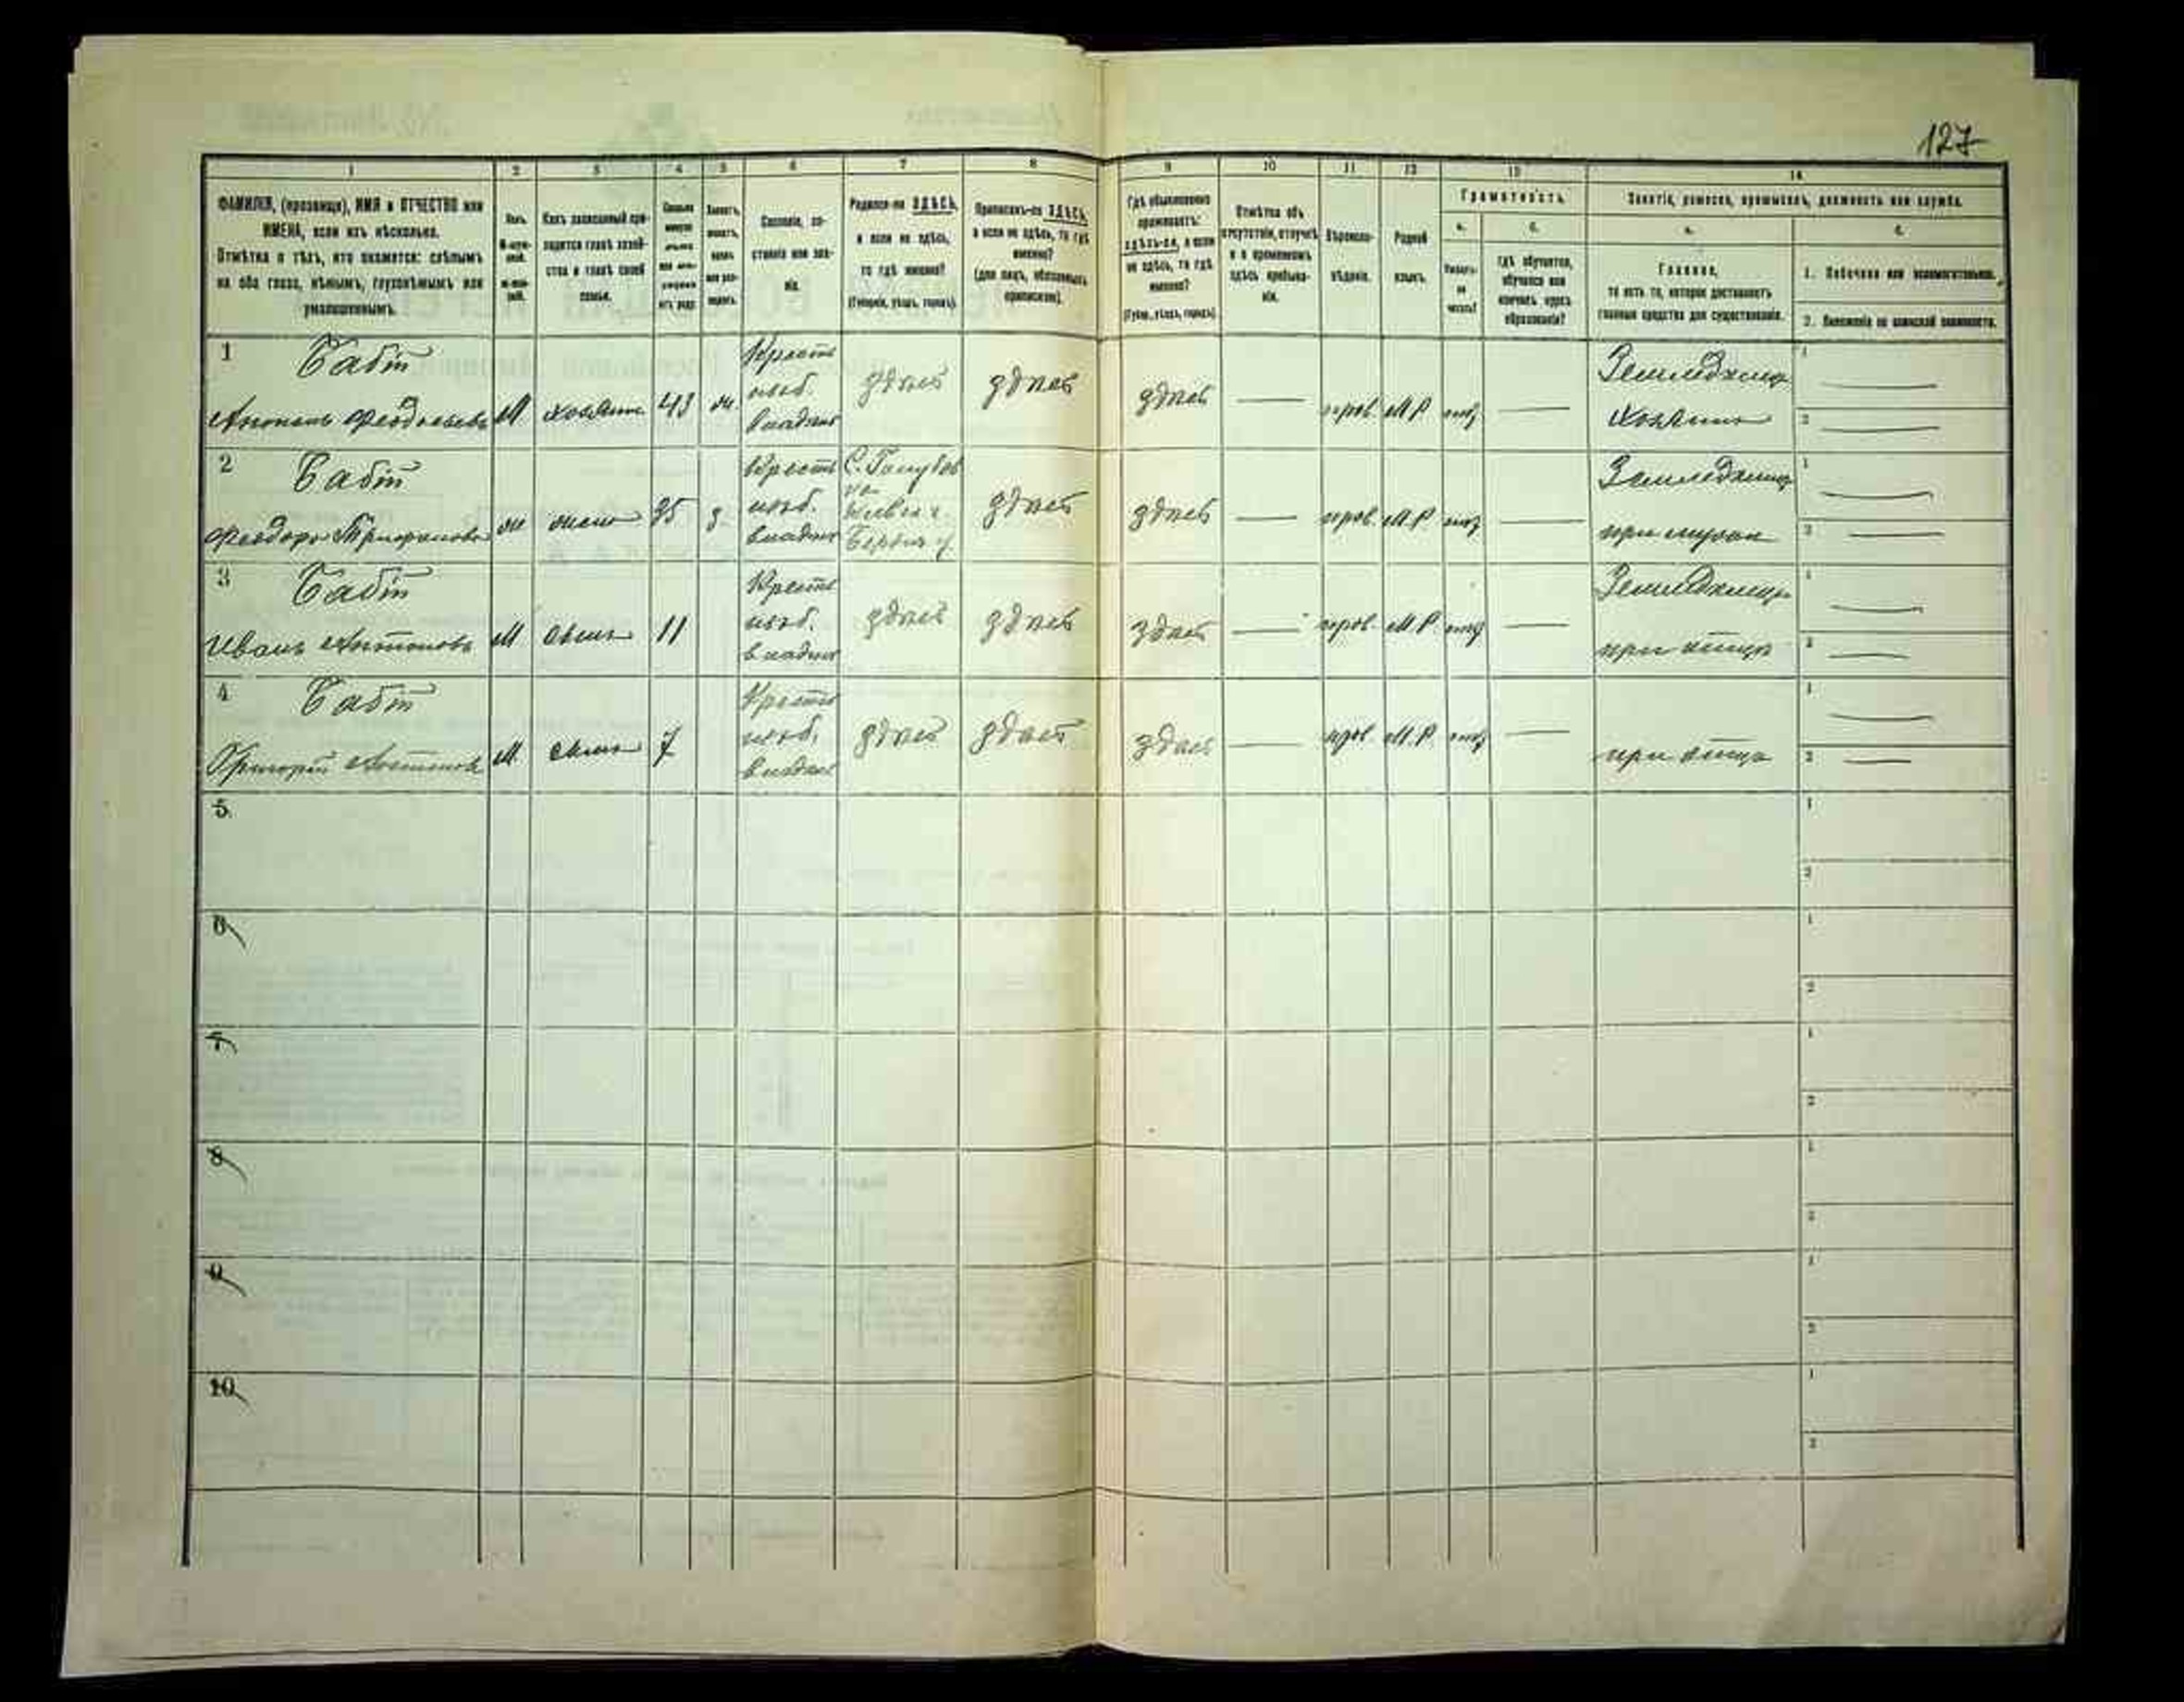 127
1 2 3 4 5 6 7 8 9 10 11 12 13 14
ФАМИЛІЯ, (прозвище), ИМЯ и ОТЧЕСТВО или
ИМЕНА, если ихъ нѣсколько.
Отмѣтка о тѣхъ, кто окажется: слѣпымъ
на оба глаза, нѣмымъ, глухонѣмымъ или
умалишеннымъ.
Полъ.
М-муж-
ской.
Ж-жен-
скій.
Какъ записанный при-
ходится главѣ хозяй-
ства и главѣ своей
семьи.
Сословіе, со-
стояніе или зва-
ніе.
Родился-ли ЗДѢСЬ,
а если не здѣсь,
то гдѣ именно?
(Губернія, уѣздъ, городъ).
Приписанъ-ли ЗДѢСЬ,
а если не здѣсь, то гдѣ
именно?
(для лицъ, обязанныхъ
припискою).
Гдѣ обыкновенно
проживаетъ:
здѣсь-ли, а если
не здѣсь, то гдѣ
именно?
(Губер., уѣздъ, городъ).
Отмѣтка объ
отсутствіи, отлучкѣ
и о временномъ
здѣсь пребыва-
ніи.
Вѣроиспо-
вѣданіе.
Родной
языкъ.
Грамотность.
а. б.
Умѣетъ-
ли
читать?
гдѣ обучается,
обучался или
кончилъ курсъ
образованія?
Занятіе, ремесло, промыселъ, должность или служба.
а. б.
Главное,
то есть то, которое доставляетъ
главныя средства для существованія.
1. Побочное или вспомогательное.
2. Положеніе по воинской повинности.
1 Бабій
Антонъ Феодосіевъ М хозяинъ 43 ж.
Крестъ
изъ б.
владѣл
здѣсь здѣсь здѣсь — прав. М.Р. нѣтъ —
Земледѣлецъ
хозяинъ
2 Бабій
Феодора Трифонова ж жена 35 з.
Крестъ
изъ б.
владѣл
С. Голубов
ка
Кіевск г.
Бердич у.
здѣсь здѣсь — прав. М.Р. нѣтъ —
Земледѣлецъ
при мужѣ
3 Бабій
Иванъ Антоновъ М сынъ 11
Крестъ
изъ б.
владѣл
здѣсь здѣсь здѣсь — прав. М.Р. нѣтъ —
Земледѣлецъ
при отцѣ
4 Бабій
Григорій Антонов М. сынъ 7
Крестъ
изъ б.
владѣл
здѣсь здѣсь здѣсь — прав. М.Р. нѣтъ —
при отцѣ
5.
6
7
8
9
10